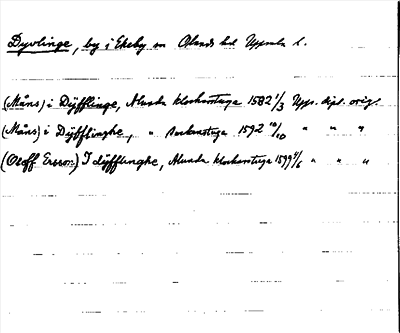 Dyvlinge, by i Ekeby sn Olands hd Uppsala l.
(Måns) i Dÿfflinge, Alunda klockarstuga 1582 1/3 Upps. dipl. orig.
(Måns) i Dÿfflinghe, " sockenstuga 1592 10/10 " " "
(Oloff Ersson) I dÿfflinghe, Alunda klockarstuga 1599 4/6 " " "